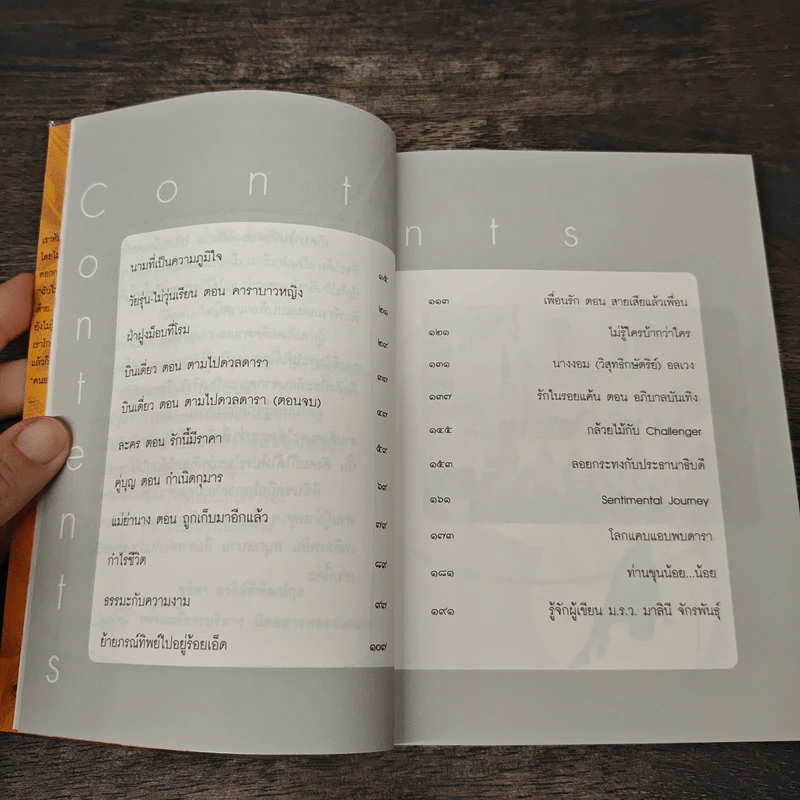 Contents
Contents
นามที่เป็นความภูมิใจ ๑๕
วัยรุ่น-ไม่วุ่นเรียน ตอน คาราบาวหญิง ๒๑
ฝ่าฝูงม็อบที่โรม ๒๙
บินเดี่ยว ตอน ตามไปดวลดารา ๓๗
บินเดี่ยว ตอน ตามไปดวลดารา (ตอนจบ) ๔๓
ละคร ตอน รักนี้มีราคา ๕๙
คู่บุญ ตอน กำเนิดกุมาร ๖๙
แม่ย่านาง ตอน ถูกเก็บมาอีกแล้ว ๗๙
กำไรชีวิต ๘๙
ธรรมะกับความงาม ๙๓
ย้ายภรณ์ทิพย์ไปอยู่ร้อยเอ็ด ๑๐๓
๑๑๓ เพื่อนรัก ตอน สายเสียแล้วเพื่อน
๑๒๑ ไม่รู้ใครบ้ากว่าใคร
๑๓๑ นางงอม (วิสุทธิกษัตริย์) อลเวง
๑๓๗ รักในรอยแค้น ตอน อภิบาลบันเทิง
๑๔๕ กล้วยไม้กับ Challenger
๑๕๓ ลอยกระทงกับประธานาธิบดี
๑๖๑ Sentimental Journey
๑๗๓ โลกแคบแอบพบดารา
๑๘๑ ท่านขุนน้อย...น้อย
๑๙๑ รู้จักผู้เขียน ม.ร.ว. มาลินี จักรพันธุ์